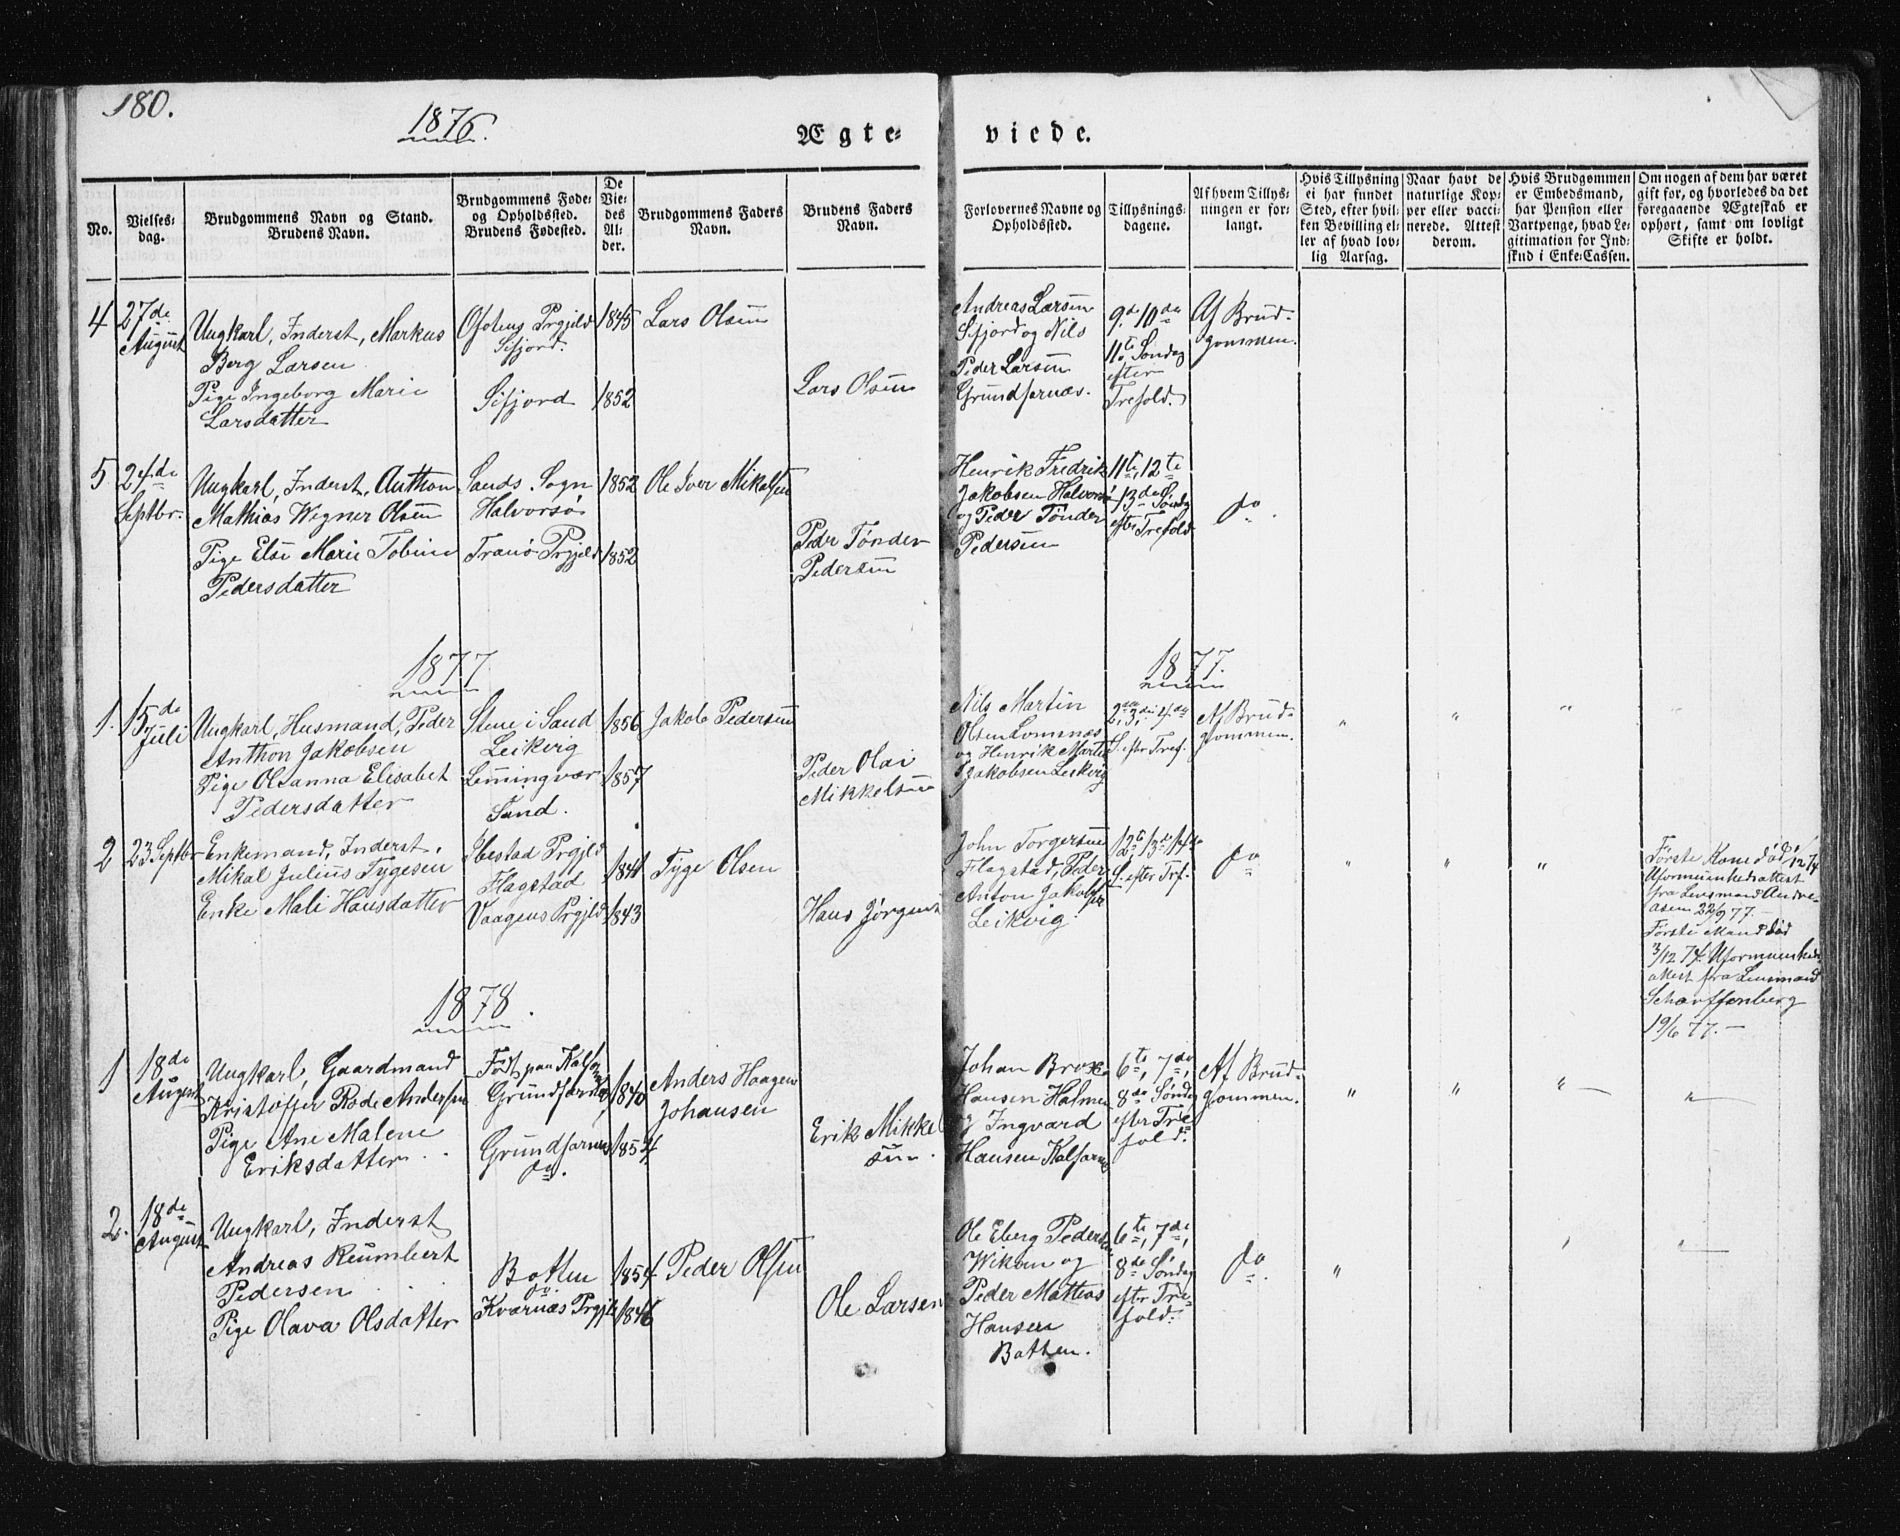 180.
1876.
Ægte-
viede.
No.
Vielses-
dag.
Brudgommens Navn og Stand.
Brudens Navn.
Brudgommens Føde-
og Opholdssted.
Brudens Fødested.
De
Vie-
des
Al-
der.
Brudgommens Faders
Navn.
Brudens Faders
Navn.
Forlovernes Navne og
Opholdssted.
Tillysnings-
dagene.
Af hvem Tillys-
ningen er for-
langt.
Hvis Tillysning
ei har fundet
Sted, efter hvil-
ken Bevilling el-
ler af hvad lov-
lig Aarsag.
Naar havt de
naturlige Kop-
per eller vacci-
nerede. Attest
derom.
Hvis Brudgommen
er Embedsmand,
har Pension eller
Vartpenge, hvad Le-
gitimation for Ind-
skud i Enke-Cassen.
Om nogen af dem har været
gift før, og hvorledes da det
foregaaende Ægteskab er
ophørt, samt om lovligt
Skifte er holdt.
4
27de
August
Ungkarl, Inderst, Markus
Berg Larsen
Pige Ingeborg Marie
Larsdatter
Ofotens Prgjeld
Sifjord.
Sifjord
1845
1852
Lars Olsen
Lars Olsen
Andreas Larsen
Sifjord og Nils
Peder Larsen
Grundfarnæs.
9de 10de
11te Søndag
efter
Trefold.
Af Brud-
gommen.
5
24de
Septbr.
Ungkarl, Inderst, Anthon
Mathias Wegner Olsen
Pige Else Marie Tobine
Pedersdatter
Sands Sogn
Halvorsø
Tranø Prgjeld
1852
1852
Ole Iver Mikalsen
Peder Tønder
Pedersen
Henrik Fredrik
Jakobsen Halvorsø
og Peder Tønder
Pedersen
11te, 12te
13de Søndag
efter Trefold
do.
1877
1877.
1.
15de
Juli
Ungkarl, Husmand, Peder
Anthon Jakobsen
Pige Olsanna Elisabet
Pedersdatter
Stene i Sand
Leikvig
Lemingvær
Sand.
1856
1857
Jakob Pedersen
Peder Olai
Mikkelsen
Nils Martin
Olsen Lomnæs
og Henrik Martin
Jakobsen Leikvig
2den, 3die, 4de
S. efter Tref.
Af Brud-
gommen.
" " " "
2
23 Septbr
Enkemand, Inderst,
Mikal Julius Tygesen
Enke Mali Hansdatter
Ibestad Prgjeld
Flagstad
Vaagens Prgjeld
1841
1843
Tyge Olsen
Hans Jørgen
John Torgersen
Flagstad, Peder
Anton Jakobsen
Leikvig.
12te 13de 14de
S. efter Trf.
do
" " "
Første Kone død 1/12 74
Uformuenhedsattest
fra Lensmand Andre-
asen 22/9 77.
Første Mand død
3/12 74. Uformuenheds
attest fra Lensmand
Scharffenberg
19/6 77.
1878.
1
18de
August
Ungkarl, Gaardmand
Kristoffer Rode Andersen
Pige Ane Malene
Eriksdatter
Født paa Kalfarnæs
Grundfarnæs,
Grundfarnæs
do.
1840
1854
Anders Haagen
Johansen
Erik Mikkel
sen.
Johan Brox
Hansen Halmen
og Ingvard
Hansen Kalfarnæs
6te, 7de,
8de Søndag
efter Tre-
fold.
Af Brud-
gommen.
" " " "
2.
18de
August
Ungkarl, Inderst
Andreas Reumbert
Pedersen
Pige Olava Olsdatter
Botten
do.
Kværnæs Prgjeld
1854
1846
Peder Olsen
Ole Larsen
Ole Eberg Pedersen
Wiken og
Peder Mathias
Hansen
Botten.
6te, 7de,
8de Søndag
efter Tre-
fold.
do.
" "